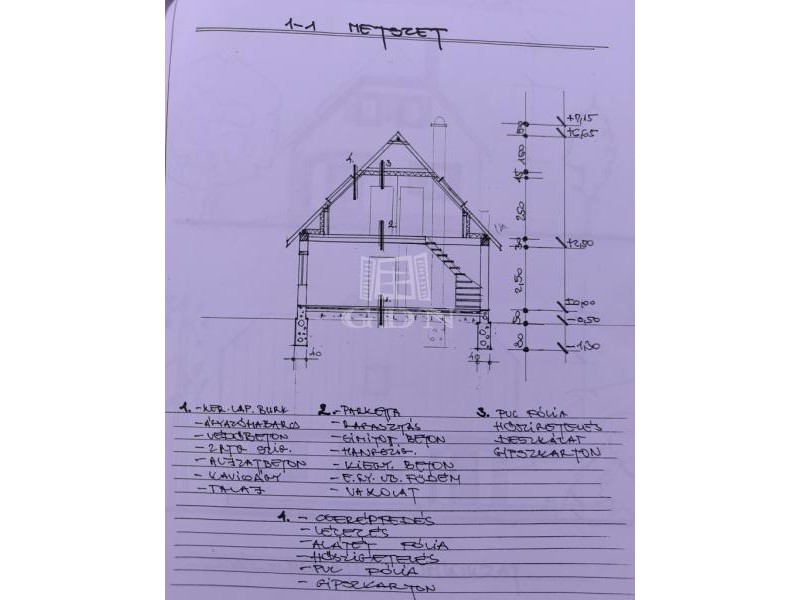 1-1 METSZET
4. 3
2
1.
GDN
+7,15
+6,65
50
150
15
250
34
+2,50
2,50
±0,00
50
-0,50
80
-1,30
40 40
1. - KER. LAP. BURK
- ÁGYAZÓHABARCS
- VÉDŐBETON
- ALJZATBETON
- KAVICSÁGY
- TALAJ
2. - PARKETTA
- RAGASZTÁS
- SIMÍTOTT BETON
- HANGSZIG.
- KIEGY. BETON
- E.GY. VB. FÖDÉM
- VAKOLAT
3. PVC FÓLIA
HŐSZIGETELÉS
DESZKÁZAT
GIPSZKARTON
1. - CSERÉPFEDÉS
- LÉCEZÉS
- ALÁTÉT FÓLIA
- HŐSZIGETELÉS
- PVC FÓLIA
- GIPSZKARTON